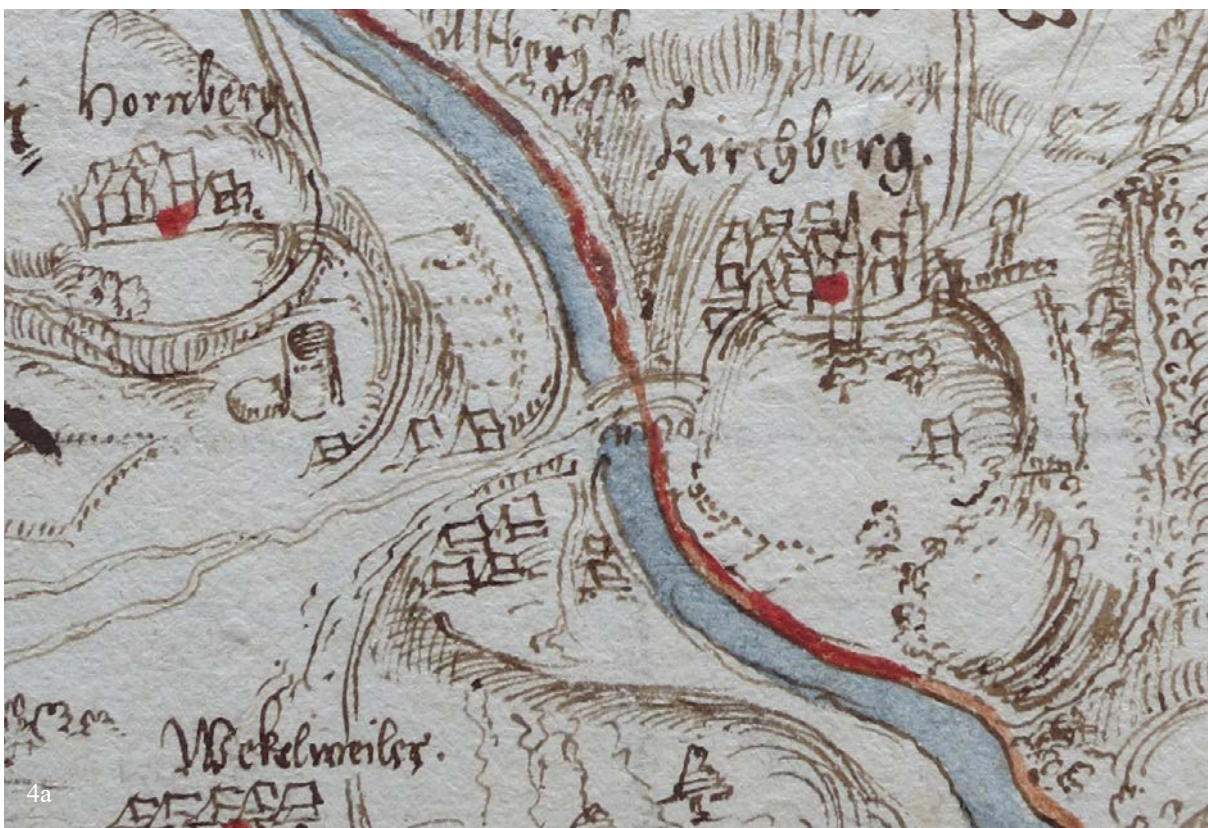 Hornberg.
Kirchberg.
Wekelweiler.
4a